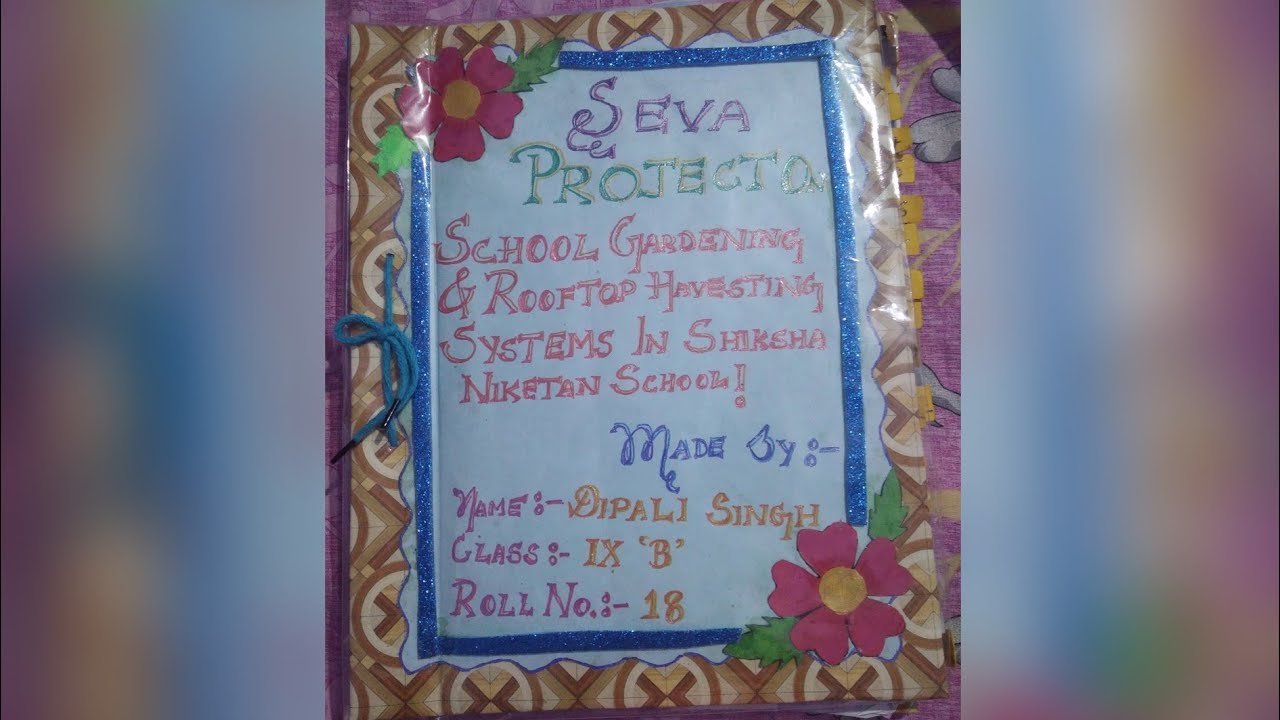 SEVA
PROJECT
SCHOOL GARDENING
& ROOFTOP HAVESTING
SYSTEMS IN SHIKSHA
NIKETAN SCHOOL!
MADE BY:-
NAME:- DIPALI SINGH
CLASS:- IX 'B'
ROLL NO.:- 18